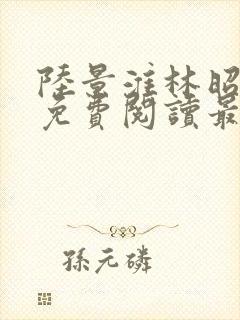 陸景淮林昭
免費閱讀最
孫元磷